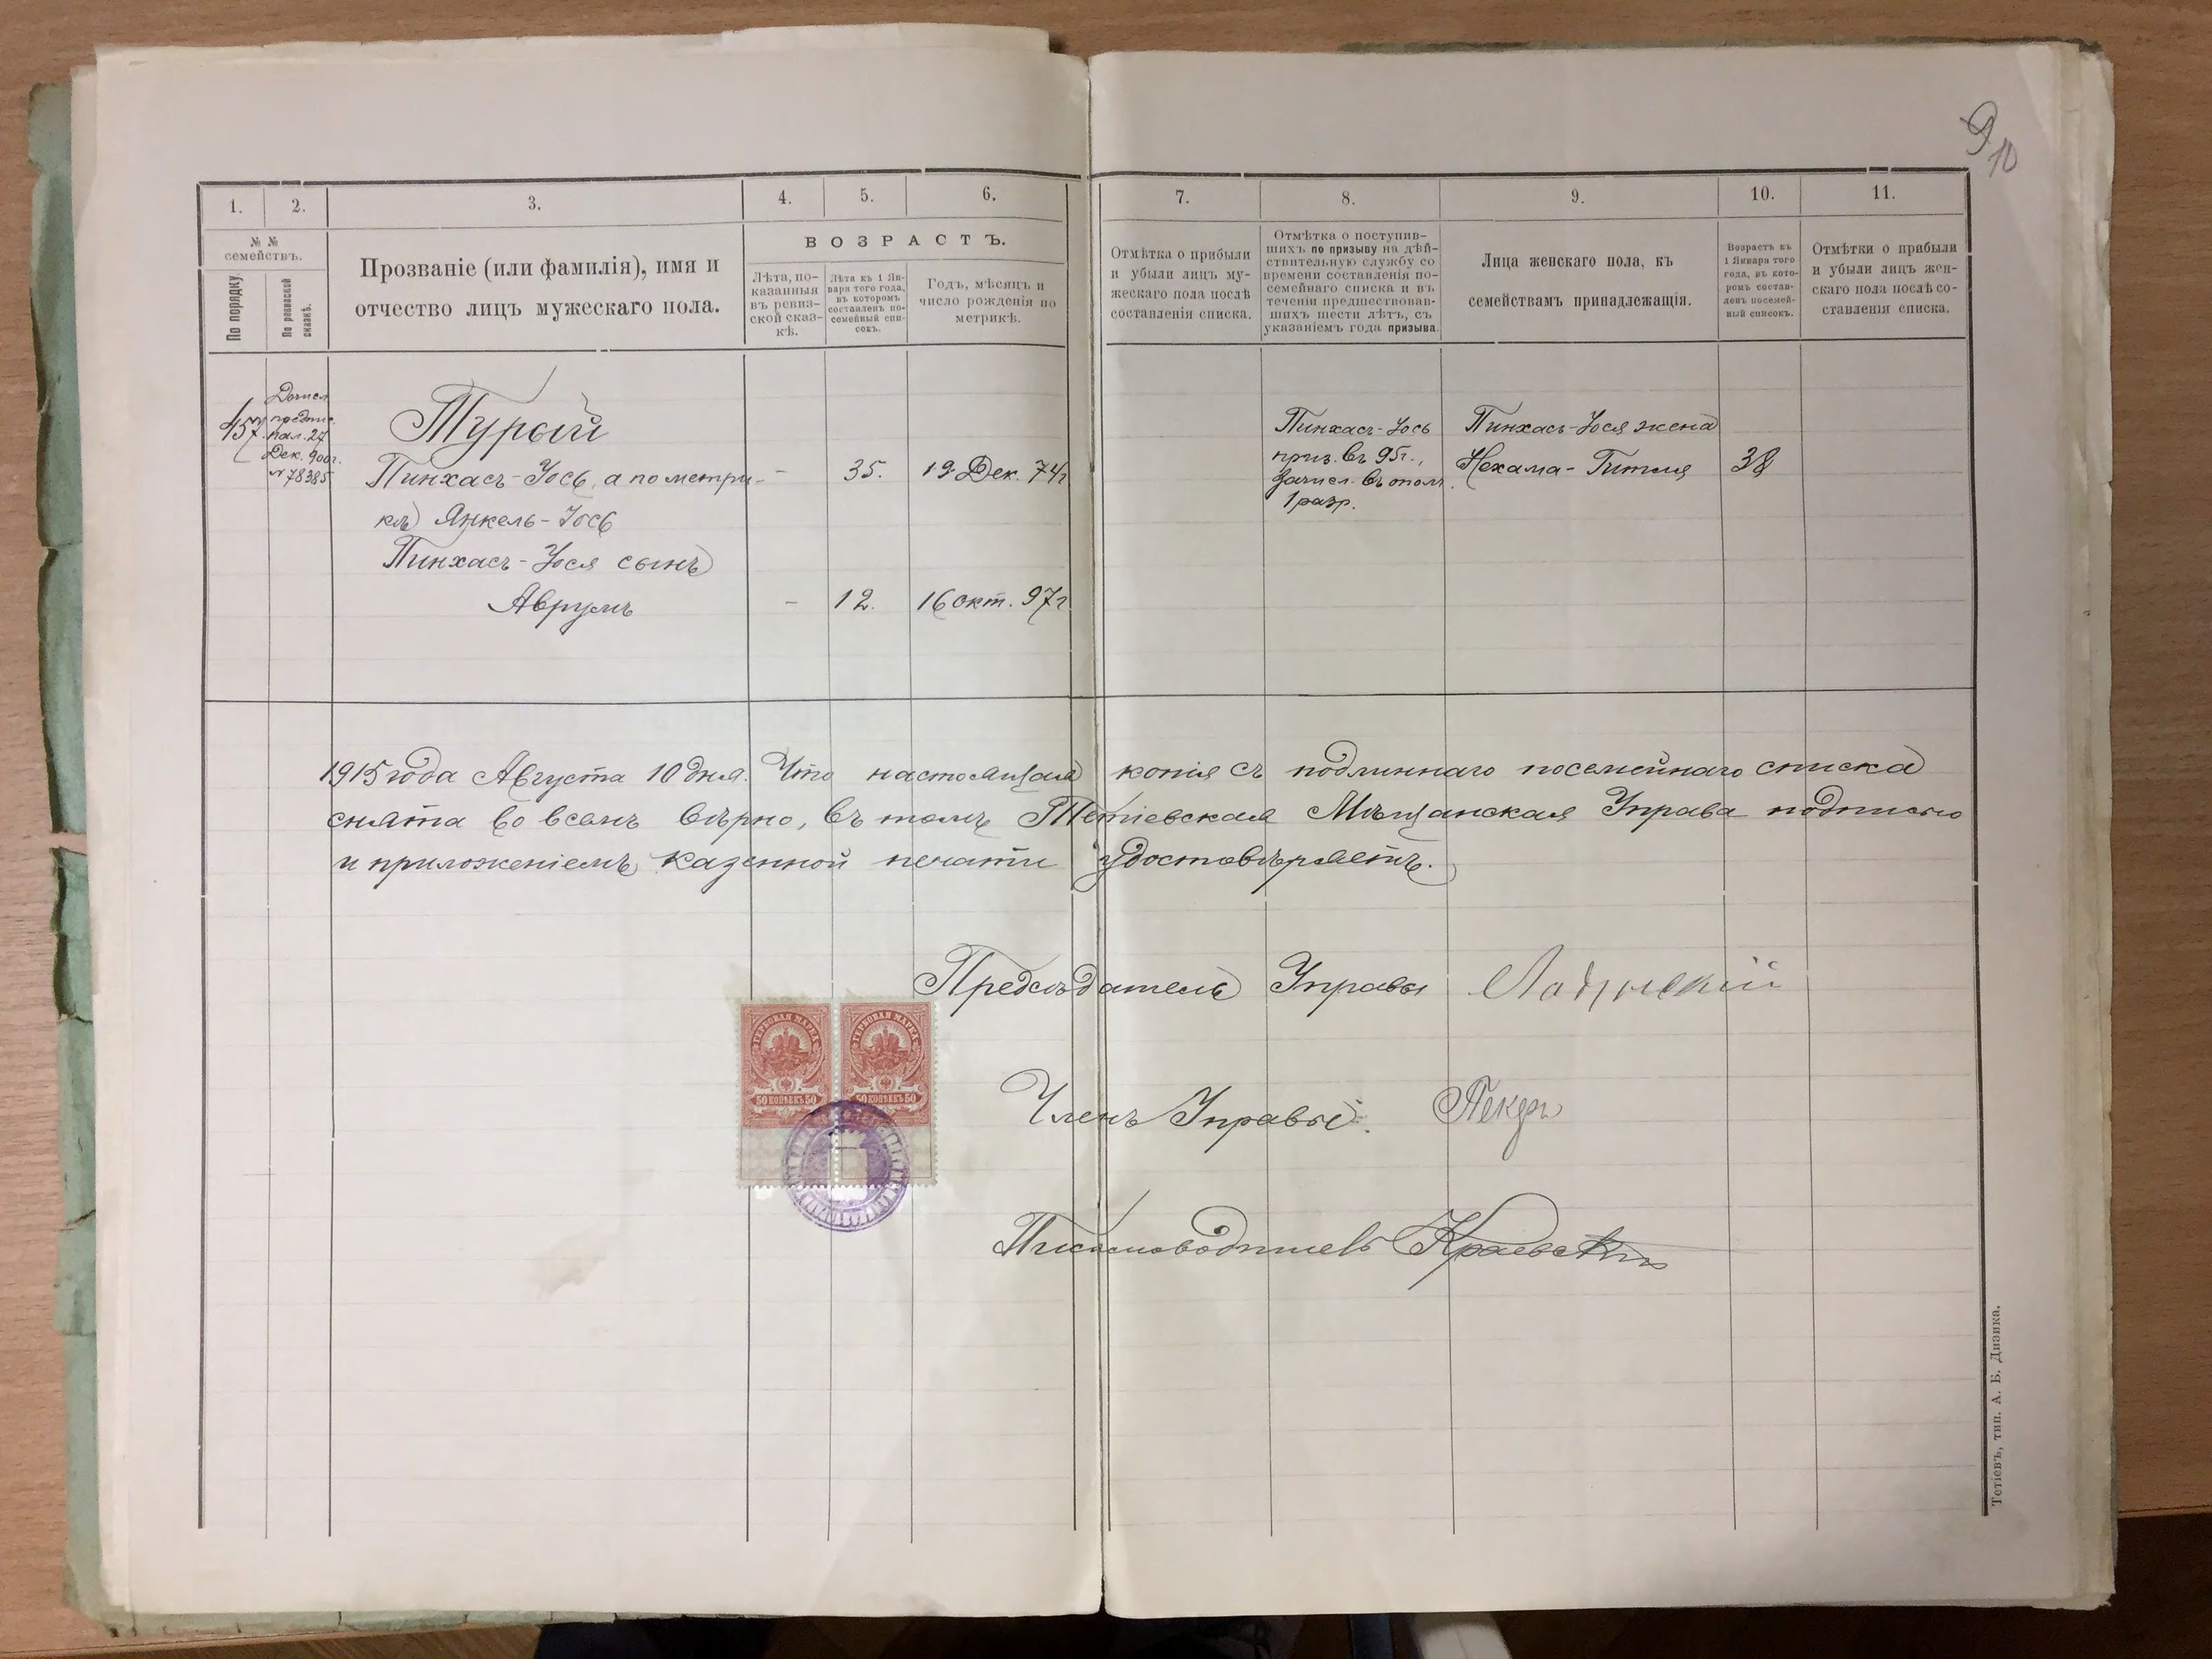 9
10
1. 2. 3. 4. 5. 6. 7. 8. 9. 10. 11.
№ № семействъ.
По порядку.
По ревизской сказкѣ.
Прозваніе (или фамилія), имя и
отчество лицъ мужескаго пола.
ВОЗРАСТЪ.
Лѣта, по-
казанныя
въ ревиз-
ской сказ-
кѣ.
Лѣта къ 1 Ян-
варя того года,
въ которомъ
составленъ по-
семейный спи-
сокъ.
Годъ, мѣсяцъ и
число рожденія по
метрикѣ.
Отмѣтка о прибыли
и убыли лицъ му-
жескаго пола послѣ
составленія списка.
Отмѣтка о поступив-
шихъ по призыву на дѣй-
ствительную службу со
времени составленія по-
семейнаго списка и въ
теченіи предшествовав-
шихъ шести лѣтъ, съ
указаніемъ года призыва.
Лица женскаго пола, къ
семействамъ принадлежащія.
Возрастъ къ
1 Января того
года, въ кото-
ромъ состав-
ленъ посемей-
ный списокъ.
Отмѣтки о прибыли
и убыли лицъ жен-
скаго пола послѣ со-
ставленія списка.
457.
Дочисл
предпис.
пал. 27
Дек. 900г.
№ 78385
Турый
Пинхасъ-Іось, а по метри- - 35. 19 Дек. 74г
кѣ Янкель-Іось
Пинхасъ-Іося сынъ
Аврумъ - 12. 16 окт. 97г
Пинхасъ-Іось
приз. въ 95г.,
зачисл. въ ополч.
1 разр.
Пинхасъ-Іося жена
Нехама-Гитля 38
1915 года Августа 10 дня. Что настоящая копія съ подлиннаго посемейнаго списка
снята во всемъ вѣрно, въ томъ Тетіевская Мѣщанская Управа подписью
и приложеніемъ казенной печати удостовѣряетъ.
Предсѣдатель Управы
Членъ Управы
Письмоводитель Краевскій
ГЕРБОВАЯ МАРКА
50 КОПѢЕКЪ 50
ГЕРБОВАЯ МАРКА
50 КОПѢЕКЪ 50
Тетіевъ, тип. А. Б. Дизика.